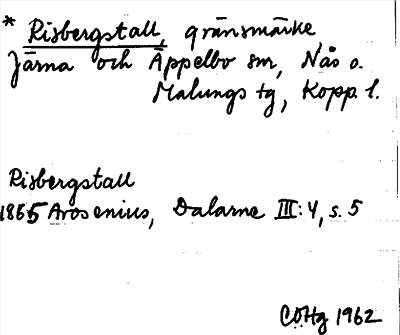 * Risbergstall, gränsmärke
Järna och Äppelbo sm, Nås o.
Malungs tg, Kopp. l.
Risbergstall
1865 Arosenius, Dalarne III: 4, s. 5
COHg 1962